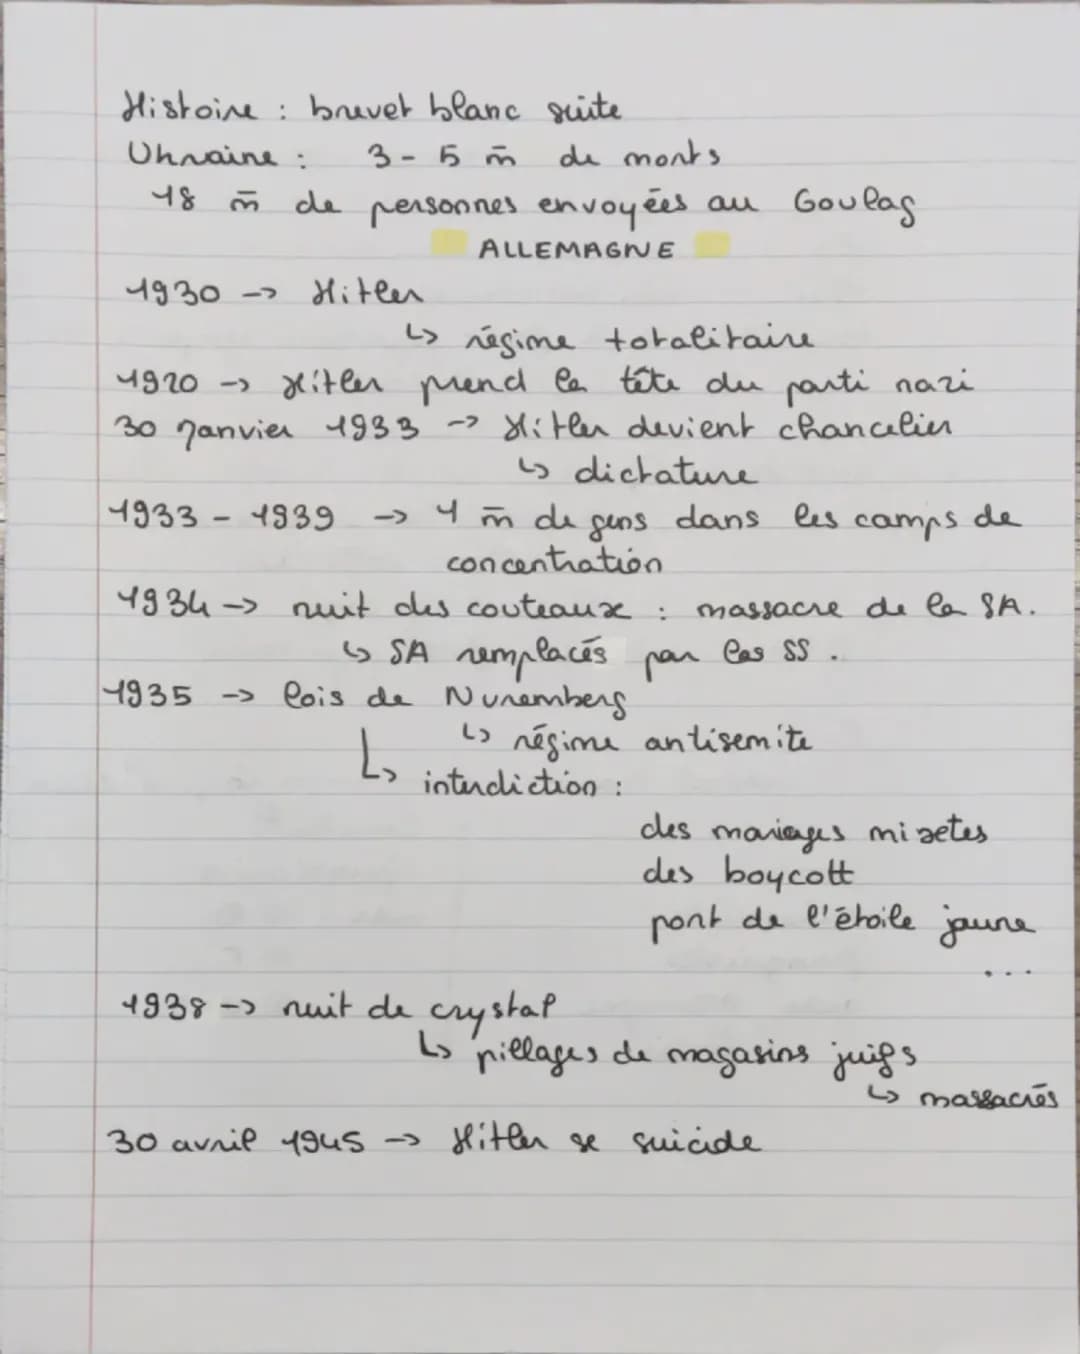 Histoire : brevet blanc suite
Ukraine : 3 - 5 m̄ de morts
18 m̄ de personnes envoyées au Goulag
ALLEMAGNE
1930 -> Hitler
↳ régime totalitaire
1920 -> Hitler prend la tête du parti nazi
30 Janvier 1933 -> Hitler devient chancelier
↳ dictature
1933 - 1939 -> 1 m̄ de gens dans les camps de
concentration
1934 -> nuit des couteaux : massacre de la SA.
↳ SA remplacés par les SS.
1935 -> lois de Nuremberg
↳ régime antisemite
↳ interdiction :
des mariages mixetes
des boycott
port de l'étoile jaune
...
1938 -> nuit de crystal
↳ pillages de magasins juifs
↳ massacrés
30 avril 1945 -> Hitler se suicide